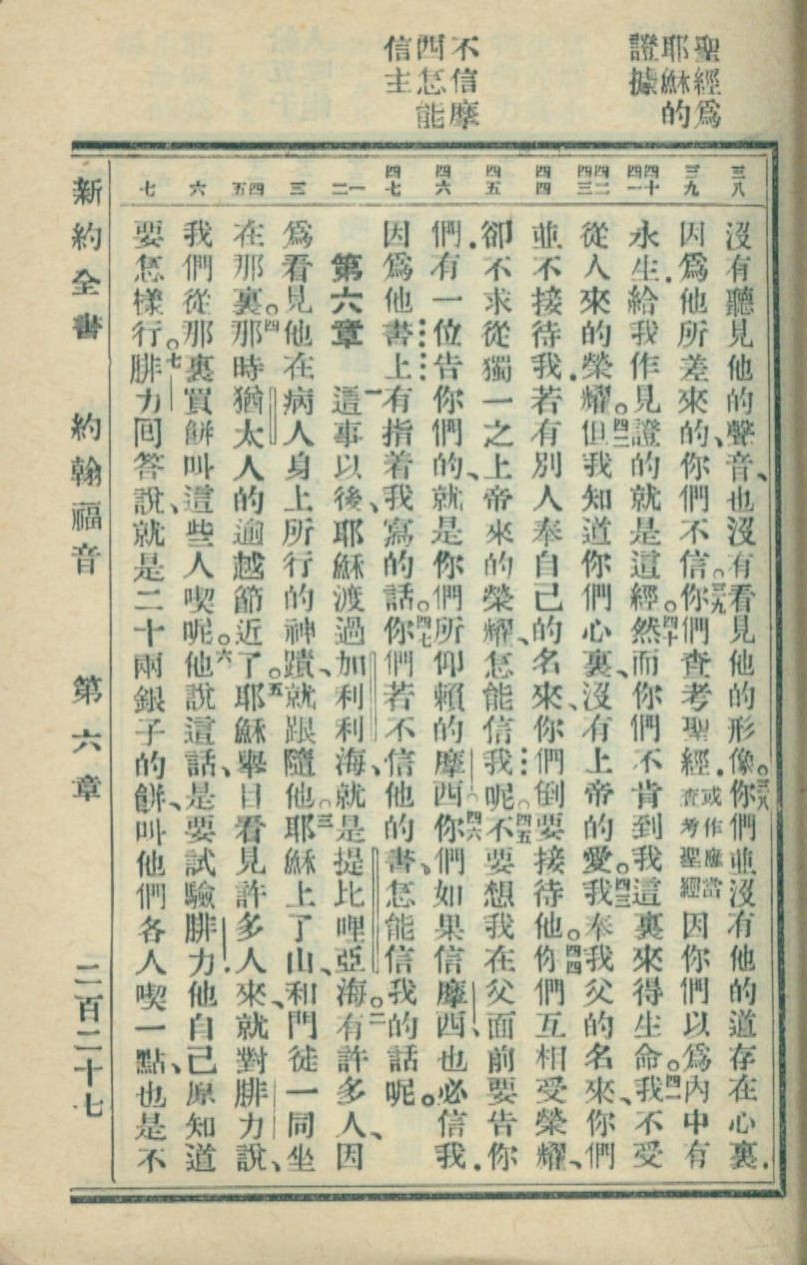 聖經爲
耶穌的
證據
不信摩
西怎能
信主
三八
三九
四十
四一
四二
四三
四四
四五
四六
四七
一
二
三
四
五
六
七
沒有聽見他的聲音、也沒有看見他的形像。三八你們並沒有他的道存在心裏.
因爲他所差來的、你們不信。三九你們查考聖經.或作應當查考聖經因你們以爲內中有
永生.給我作見證的就是這經。四十然而你們不肯到我這裏來得生命。四一我不受
從人來的榮耀。四二但我知道你們心裏、沒有上帝的愛。四三我奉我父的名來、你們
並不接待我.若有別人奉自己的名來、你們倒要接待他。四四你們互相受榮耀、
卻不求從獨一之上帝來的榮耀、怎能信我呢。四五不要想我在父面前要告你
們.有一位告你們的、就是你們所仰賴的摩西。四六你們如果信摩西、也必信我.
因爲他書上有指着我寫的話。四七你們若不信他的書、怎能信我的話呢。
第六章 一這事以後、耶穌渡過加利利海、就是提比哩亞海。二有許多人、因
爲看見他在病人身上所行的神蹟、就跟隨他。三耶穌上了山、和門徒一同坐
在那裏。四那時猶太人的逾越節近了。五耶穌舉目看見許多人來、就對腓力說、
我們從那裏買餅叫這些人喫呢。六他說這話、是要試驗腓力.他自己原知道
要怎樣行。七腓力回答說、就是二十兩銀子的餅、叫他們各人喫一點、也是不
新約全書 約翰福音 第六章 二百二十七